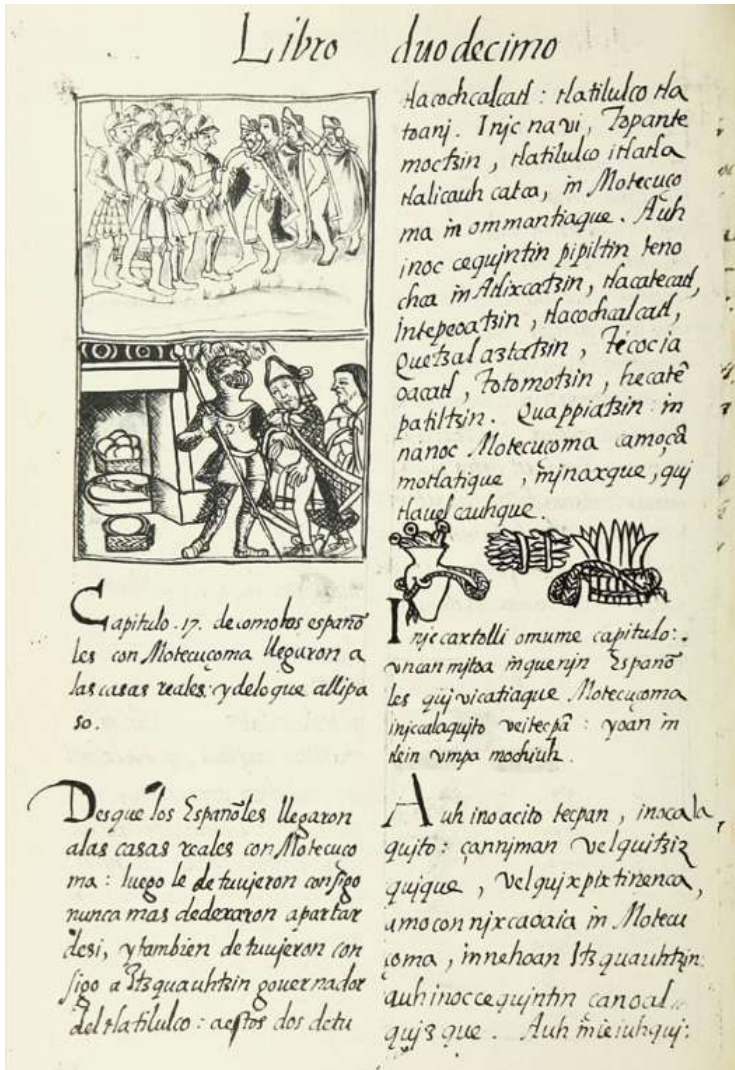 Libro duodecimo
Capitulo .17. de como los españo
les con Motecuçoma llegaron a
las casas reales: y delo que alli pa
so.
Desque los Españoles llegaron
a las casas reales con Motecuço
ma: luego le detuujeron consigo
nunca mas dedexaron apartar
desi, y tambien detuujeron con
sigo a Itzquauhtzin gouernador
del tlatilulco: aestos dos detu
tlacochcalcatl: tlatilulco tla
toanj. Injc navi, Topante
moctzin, tlatilulco itlatla
tlalicauh catca, in Motecuço
ma in ommantiaque. Auh
inoc cequjntin pipiltin teno
chca in Atlixcatzin, tlacatecatl,
Intepeoatzin, tlacochcalcatl,
Quetzalaztatzin, Tecocia
oacatl, Totomotzin, hecatē
patiltzin. Quappiatzin: in
nanoc Motecuçoma camoçā
motlatique, mjnaxque, quj
tlauelcauhque.
Injc caxtolli omume capitulo:.
vncan mjtoa inquenjn Españo
les qujvicatiaque Motecuçoma
injccalaqujto veitecpā: yoan in
tlein vmpa mochiuh.
Auh inoacito tecpan, inocala,
qujto: çannjman velquitziz
qujque, velqujxpixtinenca,
amo connjxcaoaia in Motecu
çoma, innehoan Itzquauhtzin:
auh inoccequjntin çanoal
qujzque. Auh in ieiuhquj: